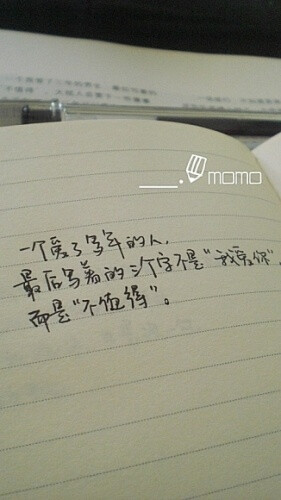 momo
一个爱了多年的人，
最后写着的三个字不是“我爱你”，
而是“不值得”。